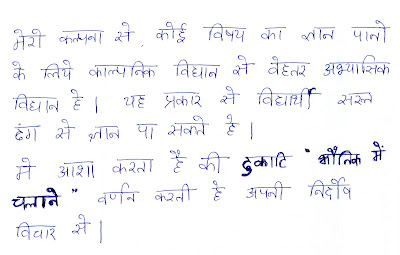 मेरो कल्पना से, कोई विषय का ज्ञान पानो
के लिये काल्पनिक विद्यान से वेहतर अभ्यासिक
विद्यान हे। यह प्रकार से विद्यार्थी सरल
ढंग से ज्ञान पा सकते हे।
मे आशा करता है की टुकाटि "भौतिक में
चलाने" वर्णन करती हे अपनी निर्दोष
विचार से।